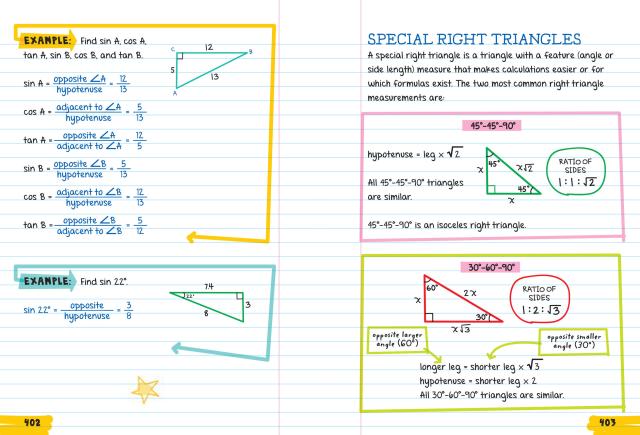 EXAMPLE: Find sin A, cos A,
tan A, sin B, cos B, and tan B.
C 12 B
5
13
A
sin A = opposite ∠A / hypotenuse = 12/13
cos A = adjacent to ∠A / hypotenuse = 5/13
tan A = opposite ∠A / adjacent to ∠A = 12/5
sin B = opposite ∠B / hypotenuse = 5/13
cos B = adjacent to ∠B / hypotenuse = 12/13
tan B = opposite ∠B / adjacent to ∠B = 5/12
EXAMPLE: Find sin 22°.
sin 22° = opposite / hypotenuse = 3/8
7.4
22°
3
8
402
SPECIAL RIGHT TRIANGLES
A special right triangle is a triangle with a feature (angle or
side length) measure that makes calculations easier or for
which formulas exist. The two most common right triangle
measurements are:
45°-45°-90°
hypotenuse = leg x √2
All 45°-45°-90° triangles
are similar.
45°
x
x√2
45°
x
RATIO OF
SIDES
1 : 1 : √2
45°-45°-90° is an isoceles right triangle.
30°-60°-90°
60°
x
2x
30°
x√3
RATIO OF
SIDES
1 : 2 : √3
opposite larger
angle (60°)
opposite smaller
angle (30°)
longer leg = shorter leg x √3
hypotenuse = shorter leg x 2
All 30°-60°-90° triangles are similar.
403